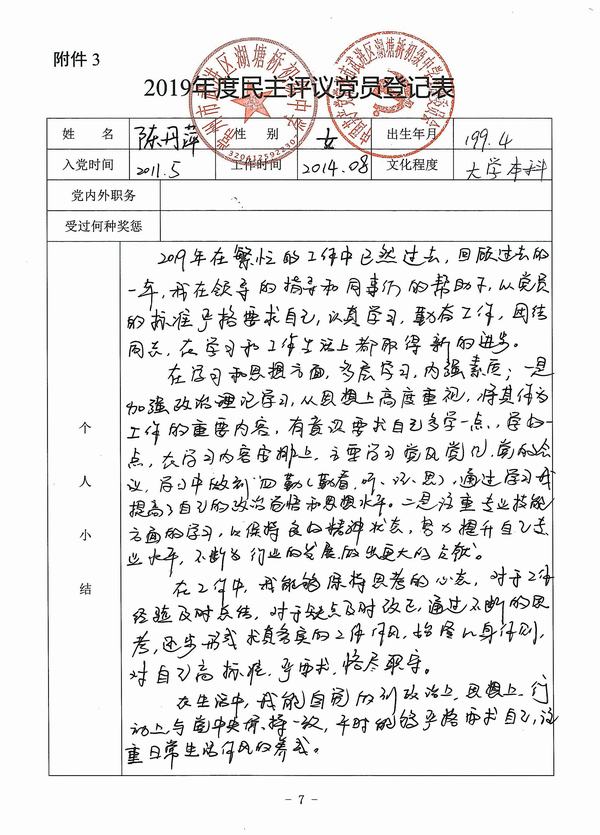 附件 3
2019年度民主评议党员登记表
姓 名 陈丹萍 性 别 女 出生年月 199.4
入党时间 2011.5 工作时间 2014.08 文化程度 大学本科
党内外职务
受过何种奖惩
个人小结
2019年在繁忙的工作中已然过去，回顾过去的
一年，我在领导的指导和同事们的帮助下，从党员
的标准严格要求自己，认真学习，勤奋工作，团结
同志，在学习和工作生活上都取得新的进步。
在学习和思想方面，多层学习，内强素质；一是
加强政治理论学习，从思想上高度重视，将其作为
工作的重要内容，有意识要求自己多学一点，学好一
点，在学习内容安排上，主要学习党及党化，党的会
议，学习中做到四勤（勤看、听、记、思），通过学习我
提高了自己的政治觉悟和思想水平。二是注重专业技能
方面的学习，以保持良好精神状态，努力提升自己专
业水平，不断为行业的发展做出更大的贡献。
在工作中，我能够保持思考的心态，对于工作
经验及时总结，对于缺点及时改正，通过不断的思
考，逐步形成求真务实的工作作风，始终以身作则，
对自己高标准，严要求，恪尽职守。
在生活中，我能自觉的到政治上、思想上、行
动上与党中央保持一致，平时能够严格要求自己，注
重日常生活作风的养成。
- 7 -